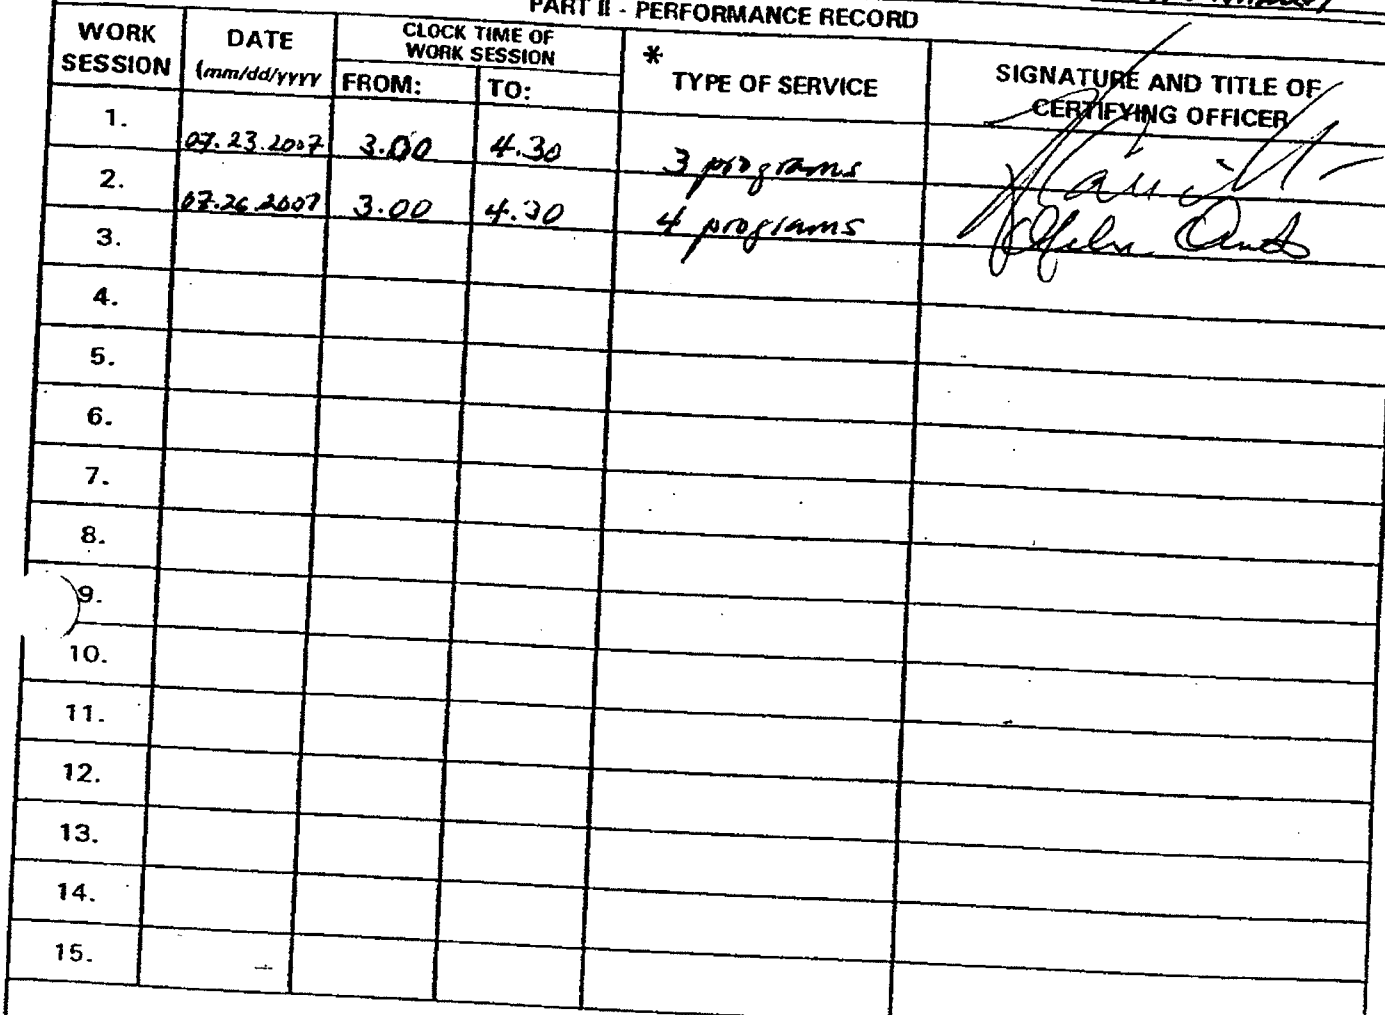 PART II - PERFORMANCE RECORD
WORK SESSION
DATE
(mm/dd/yyyy
CLOCK TIME OF WORK SESSION
FROM:
TO:
*
TYPE OF SERVICE
SIGNATURE AND TITLE OF CERTIFYING OFFICER
1.
07.23.2007 3.00 4.30 3 programs
2.
07.26.2007 3.00 4.30 4 programs
3.
4.
5.
6.
7.
8.
9.
10.
11.
12.
13.
14.
15.